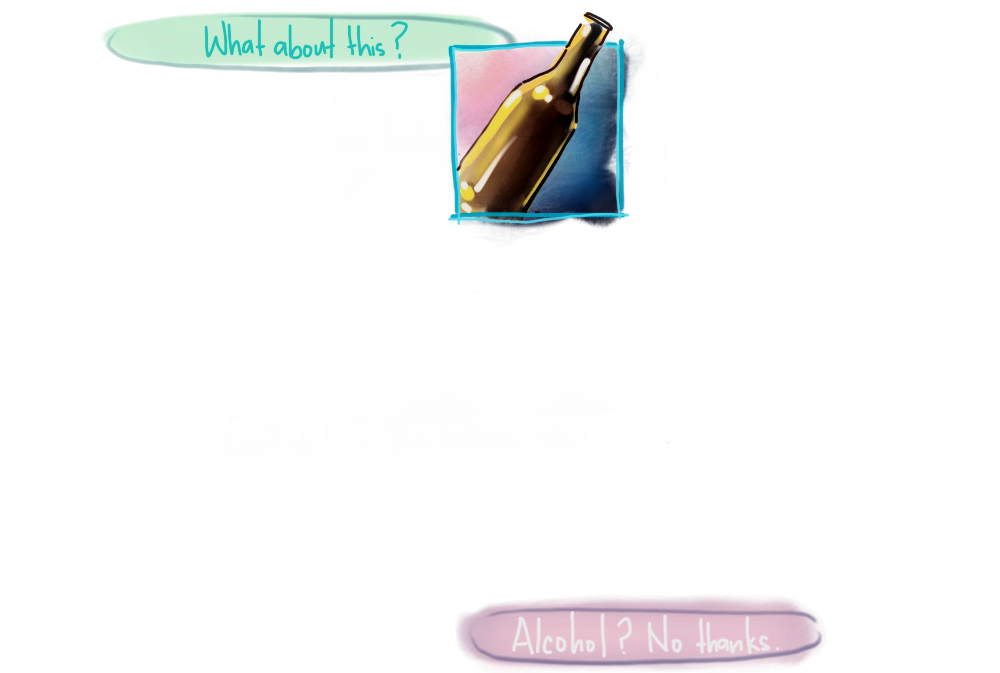 What about this?
Alcohol? No thanks.